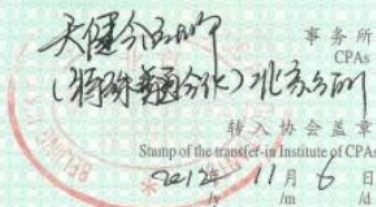 天健会计师
事务所
CPAs
(特殊普通合伙)北京分所
转入协会盖章
Stamp of the transfer-in Institute of CPAs
2012年 11月 6日
/y /m /d
BEIJING